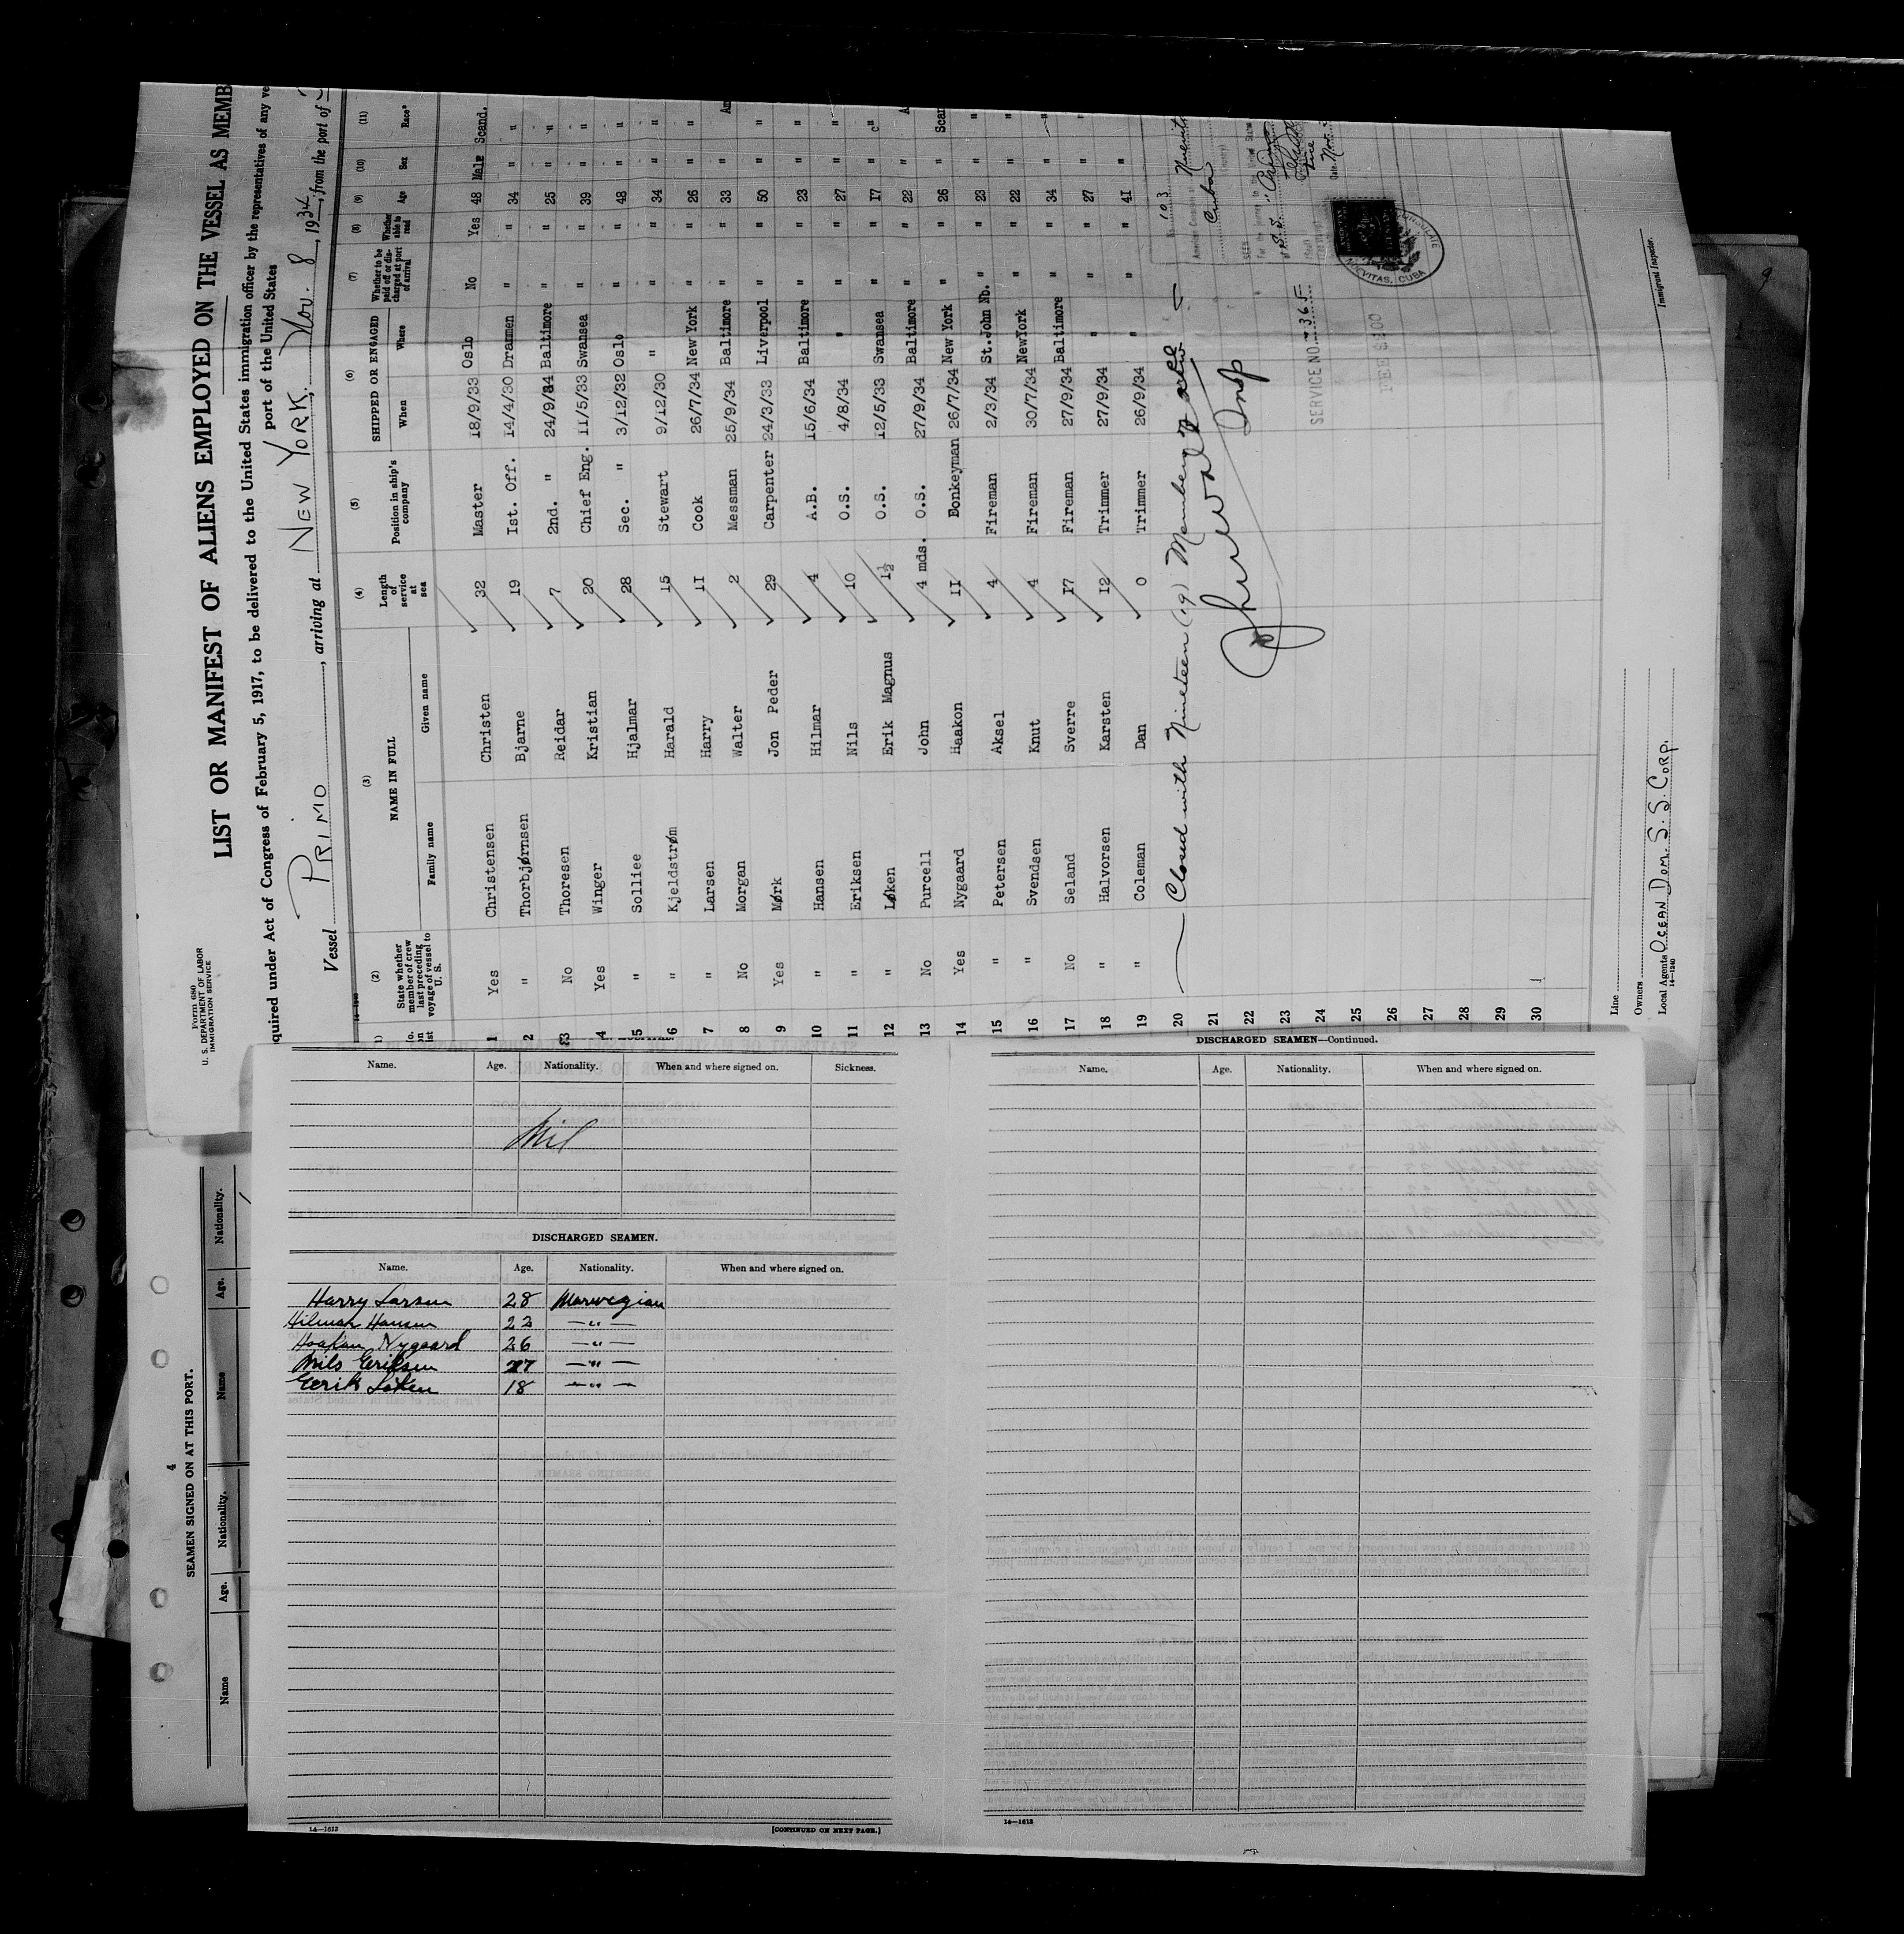 Form 680
U. S. DEPARTMENT OF LABOR
IMMIGRATION SERVICE
LIST OR MANIFEST OF ALIENS EMPLOYED ON THE VESSEL AS MEMB
equired under Act of Congress of February 5, 1917, to be delivered to the United States immigration officer by the representatives of any ve
port of the United States
Vessel PRIMO, arriving at NEW YORK, Nov. 8, 1934, from the port of
(2) (3) (4) (5) (6) (7) (8) (9) (10) (11)
State whether member of crew last preceding voyage of vessel to U. S. NAME IN FULL Length of service at sea Position in ship's company SHIPPED OR ENGAGED Whether to be paid off or discharged at port of arrival Whether able to read Age Sex Race*
Family name Given name When Where
1 Yes Christensen Christen 32 Master 18/9/33 Oslo No Yes 48 Male Scand.
2 " Thorbjørnsen Bjarne 19 Ist. Off. 14/4/30 Drammen " " 34 " "
3 No Thoresen Reidar 7 2nd. " 24/9/34 Baltimore " " 25 " "
4 Yes Winger Kristian 20 Chief Eng. 11/5/33 Swansea " " 39 " "
5 " Solliee Hjalmar 28 Sec. " 3/12/32 Oslo " " 48 " "
6 " Kjeldstrøm Harald 15 Stewart 9/12/30 " " " 34 " "
7 " Larsen Harry 11 Cook 26/7/34 New York " " 26 " "
8 No Morgan Walter 2 Messman 25/9/34 Baltimore " " 33 "
9 Yes Mørk Jon Peder 29 Carpenter 24/3/33 Liverpool " " 50 " "
10 " Hansen Hilmar 4 A.B. 15/6/34 Baltimore " " 23 " "
11 " Eriksen Nils 10 O.S. 4/8/34 " " " 27 " "
12 " Løken Erik Magnus 1½ O.S. 12/5/33 Swansea " " 17 " "
13 No Purcell John 4 mds. O.S. 27/9/34 Baltimore " " 22 "
14 Yes Nygaard Haakon 11 Donkeyman 26/7/34 New York " " 26 " Scan
15 " Petersen Aksel 4 Fireman 2/3/34 St.John Nb. " " 23 " "
16 " Svendsen Knut 4 Fireman 30/7/34 NewYork " " 22 " "
17 No Seland Sverre 17 Fireman 27/9/34 Baltimore " " 34 " "
18 " Halvorsen Karsten 12 Trimmer 27/9/34 " " " 27 " "
19 " Coleman Dan 0 Trimmer 26/9/34 " " " 41 "
20 Closed with Nineteen (19) Members
21
22
23
24
25
26
27
28
29
30
No. 103
Cuba
SERVICE NO. 365
FEE $
NUEVITAS, CUBA
Immigrant Inspector.
Line
Owners
Local Agents OCEAN DOM. S. S. CORP.
14—1240
4
SEAMEN SIGNED ON AT THIS PORT.
Name Age. Nationality. Name Age. Nationality.
Name. Age. Nationality. When and where signed on. Sickness.
Nil
DISCHARGED SEAMEN.
Name. Age. Nationality. When and where signed on.
Harry Larsen 28 Norwegian
Hilmar Hansen 23 —"—
Haakon Nygaard 26 —"—
Nils Eriksen 27 —"—
Eerik Løken 18 —"—
14—1613
[CONTINUED ON NEXT PAGE.]
DISCHARGED SEAMEN—Continued.
Name. Age. Nationality. When and where signed on.
14—1613